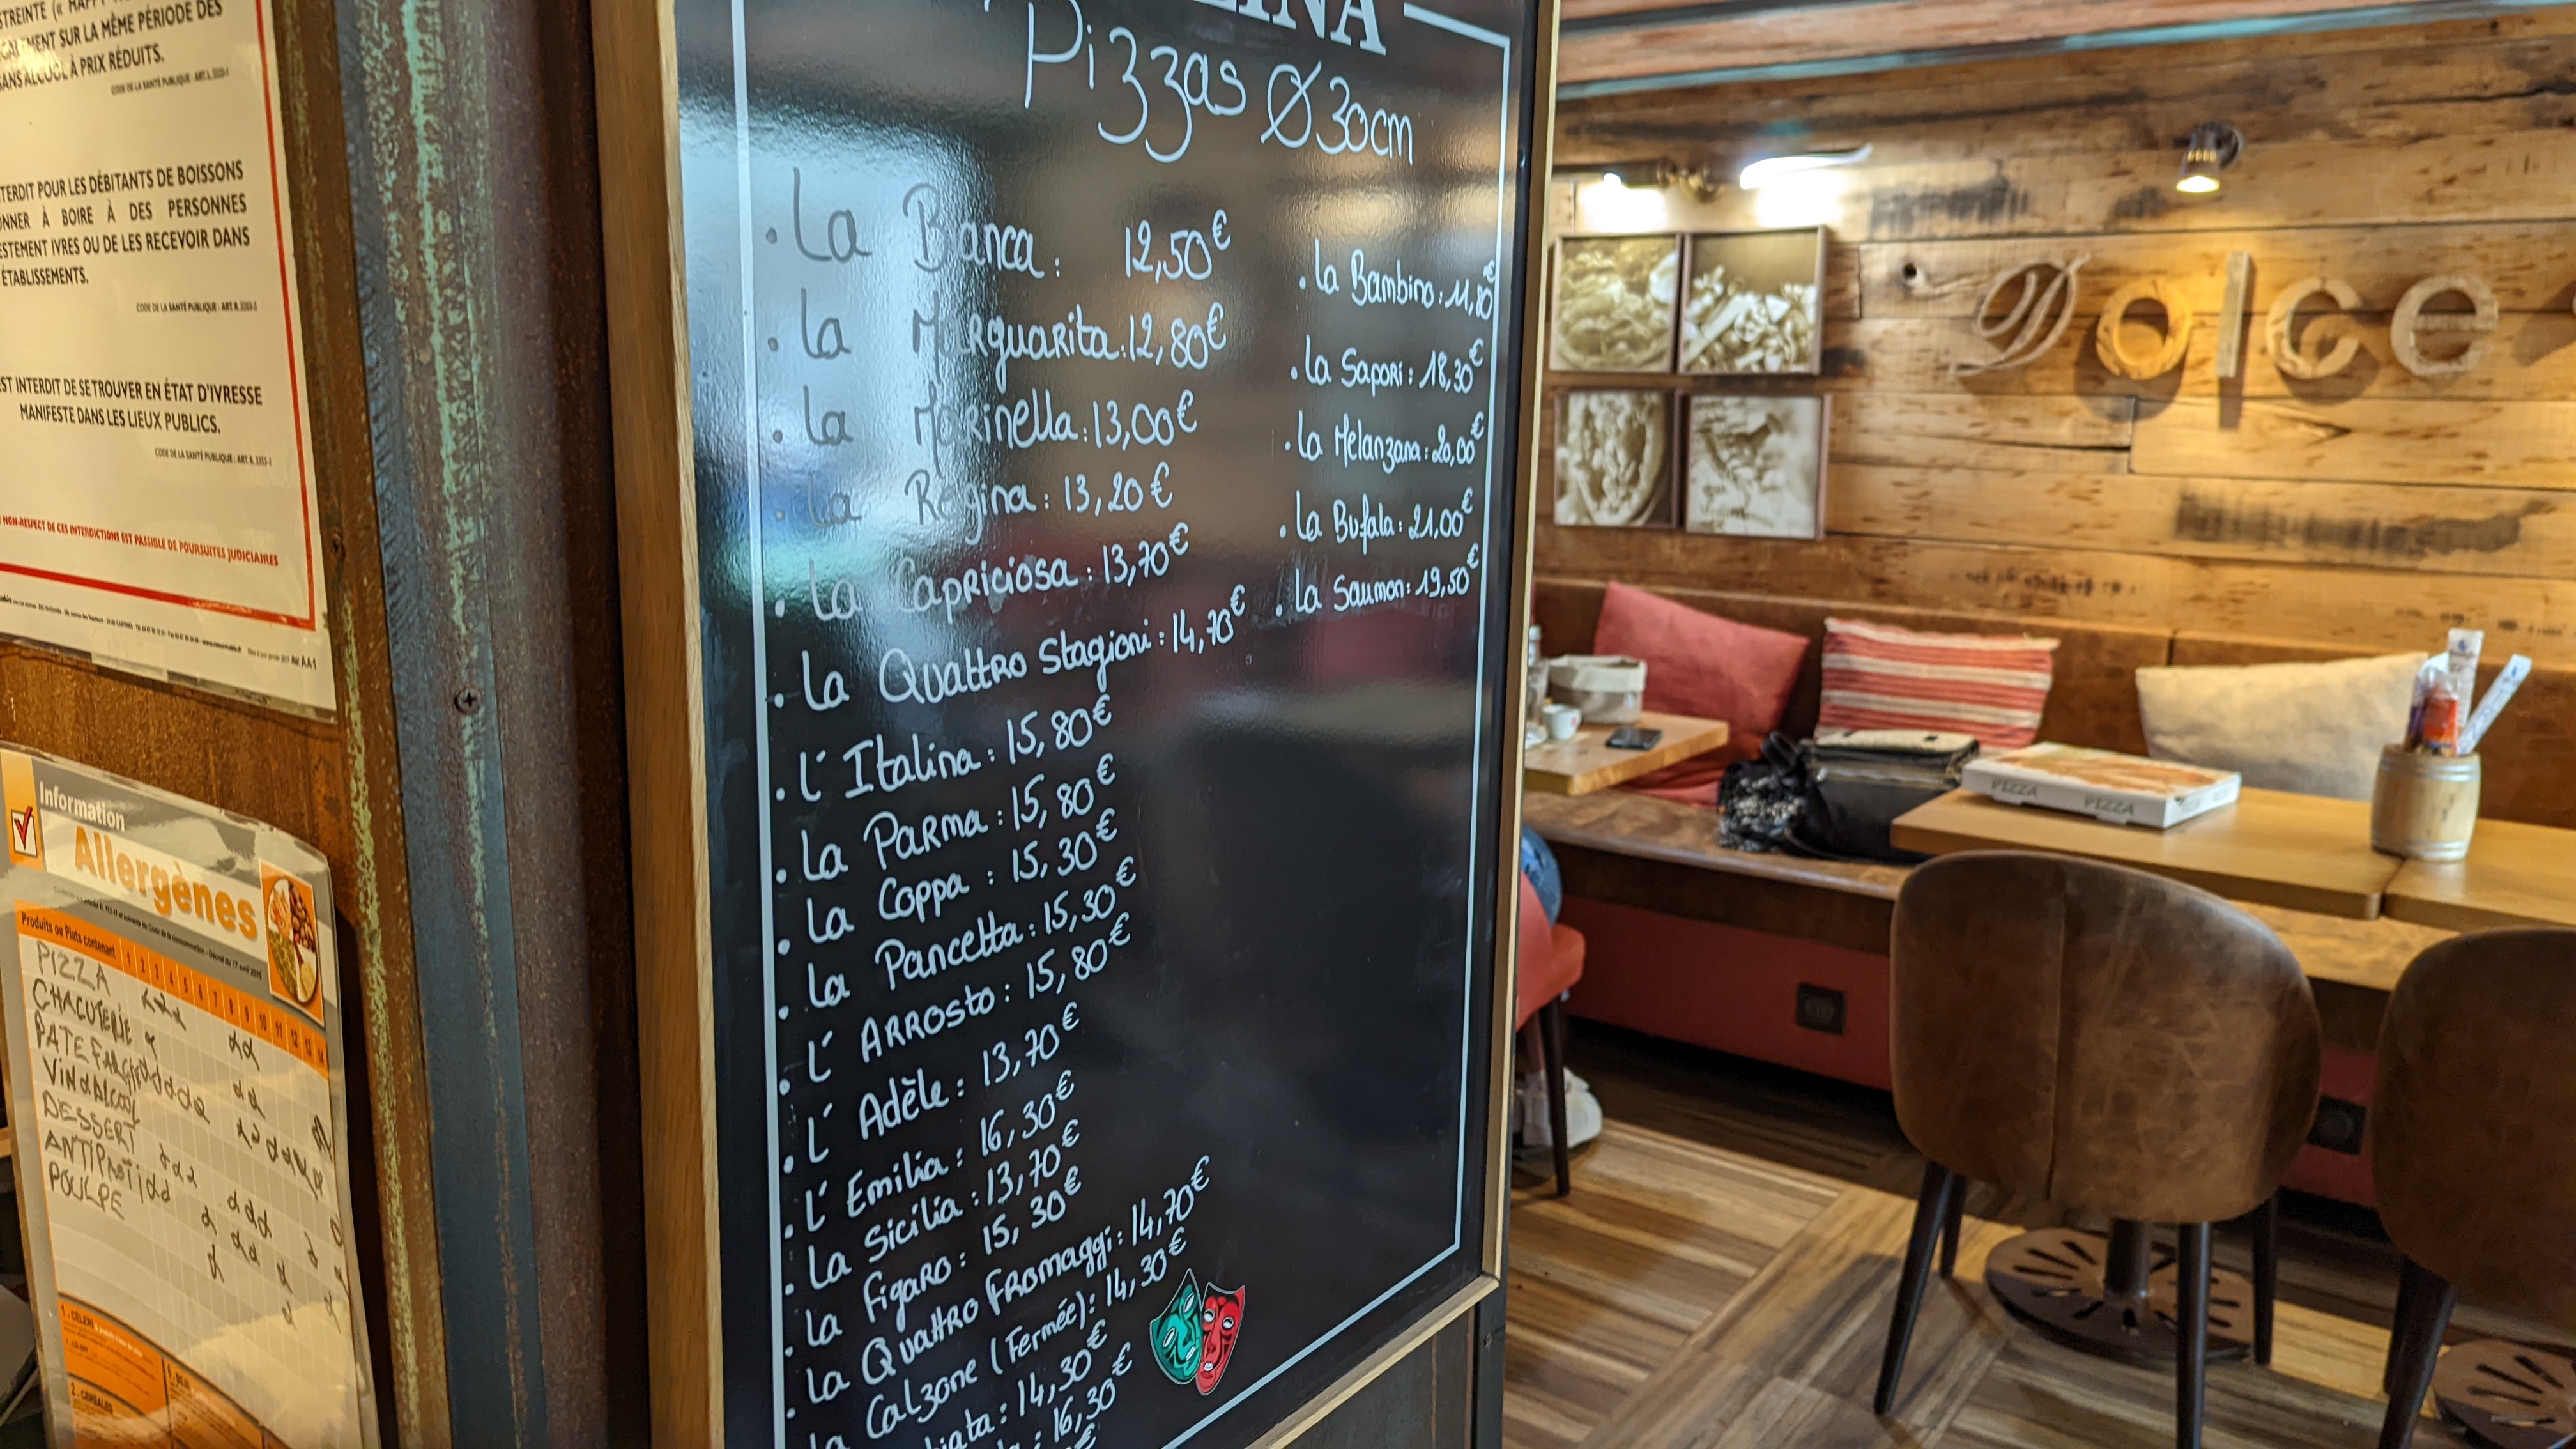 SUR LA MÊME PÉRIODE DES
SANS ALCOOL À PRIX RÉDUITS.
CODE DE LA SANTÉ PUBLIQUE : ART. L. 3323-1
POUR LES DÉBITANTS DE BOISSONS
À BOIRE À DES PERSONNES
IVRES OU DE LES RECEVOIR DANS
ÉTABLISSEMENTS.
CODE DE LA SANTÉ PUBLIQUE : ART. R. 3353-2
INTERDIT DE SE TROUVER EN ÉTAT D'IVRESSE
MANIFESTE DANS LES LIEUX PUBLICS.
CODE DE LA SANTÉ PUBLIQUE : ART. R. 3353-1
NON-RESPECT DE CES INTERDICTIONS EST PASSIBLE DE POURSUITES JUDICIAIRES
Réf. AA1
Information
Allergènes
Produits ou Plats contenant 1 2 3 4 5 6 7 8 9 10 11 12 13 14
PIZZA
CHACUTERIE
PATE
VIN & ALCOOL
DESSERT
POULPE
1. CÉLERI
2. CÉRÉALES
Pizzas Ø 30cm
. La Bianca : 12,50€
. La Marguarita : 12,80€
. La Marinella : 13,00€
. La Regina : 13,20€
. La Capriciosa : 13,70€
. La Quattro Stagioni : 14,70€
. L' Italina : 15,80€
. La Parma : 15,80€
. La Coppa : 15,30€
. La Pancetta : 15,30€
. L' Arrosto : 15,80€
. L' Adèle : 13,70€
. L' Emilia : 16,30€
. La Sicilia : 13,70€
. La Figaro : 15,30€
. La Quattro Fromaggi : 14,70€
La Calzone (Fermée) : 14,30€
14,30€
16,30€
. La Bambino : 11,80€
. La Sapori : 18,30€
. La Melanzana : 20,00€
. La Bufala : 21,00€
. La Saumon : 19,50€
Dolce
PIZZA
PIZZA